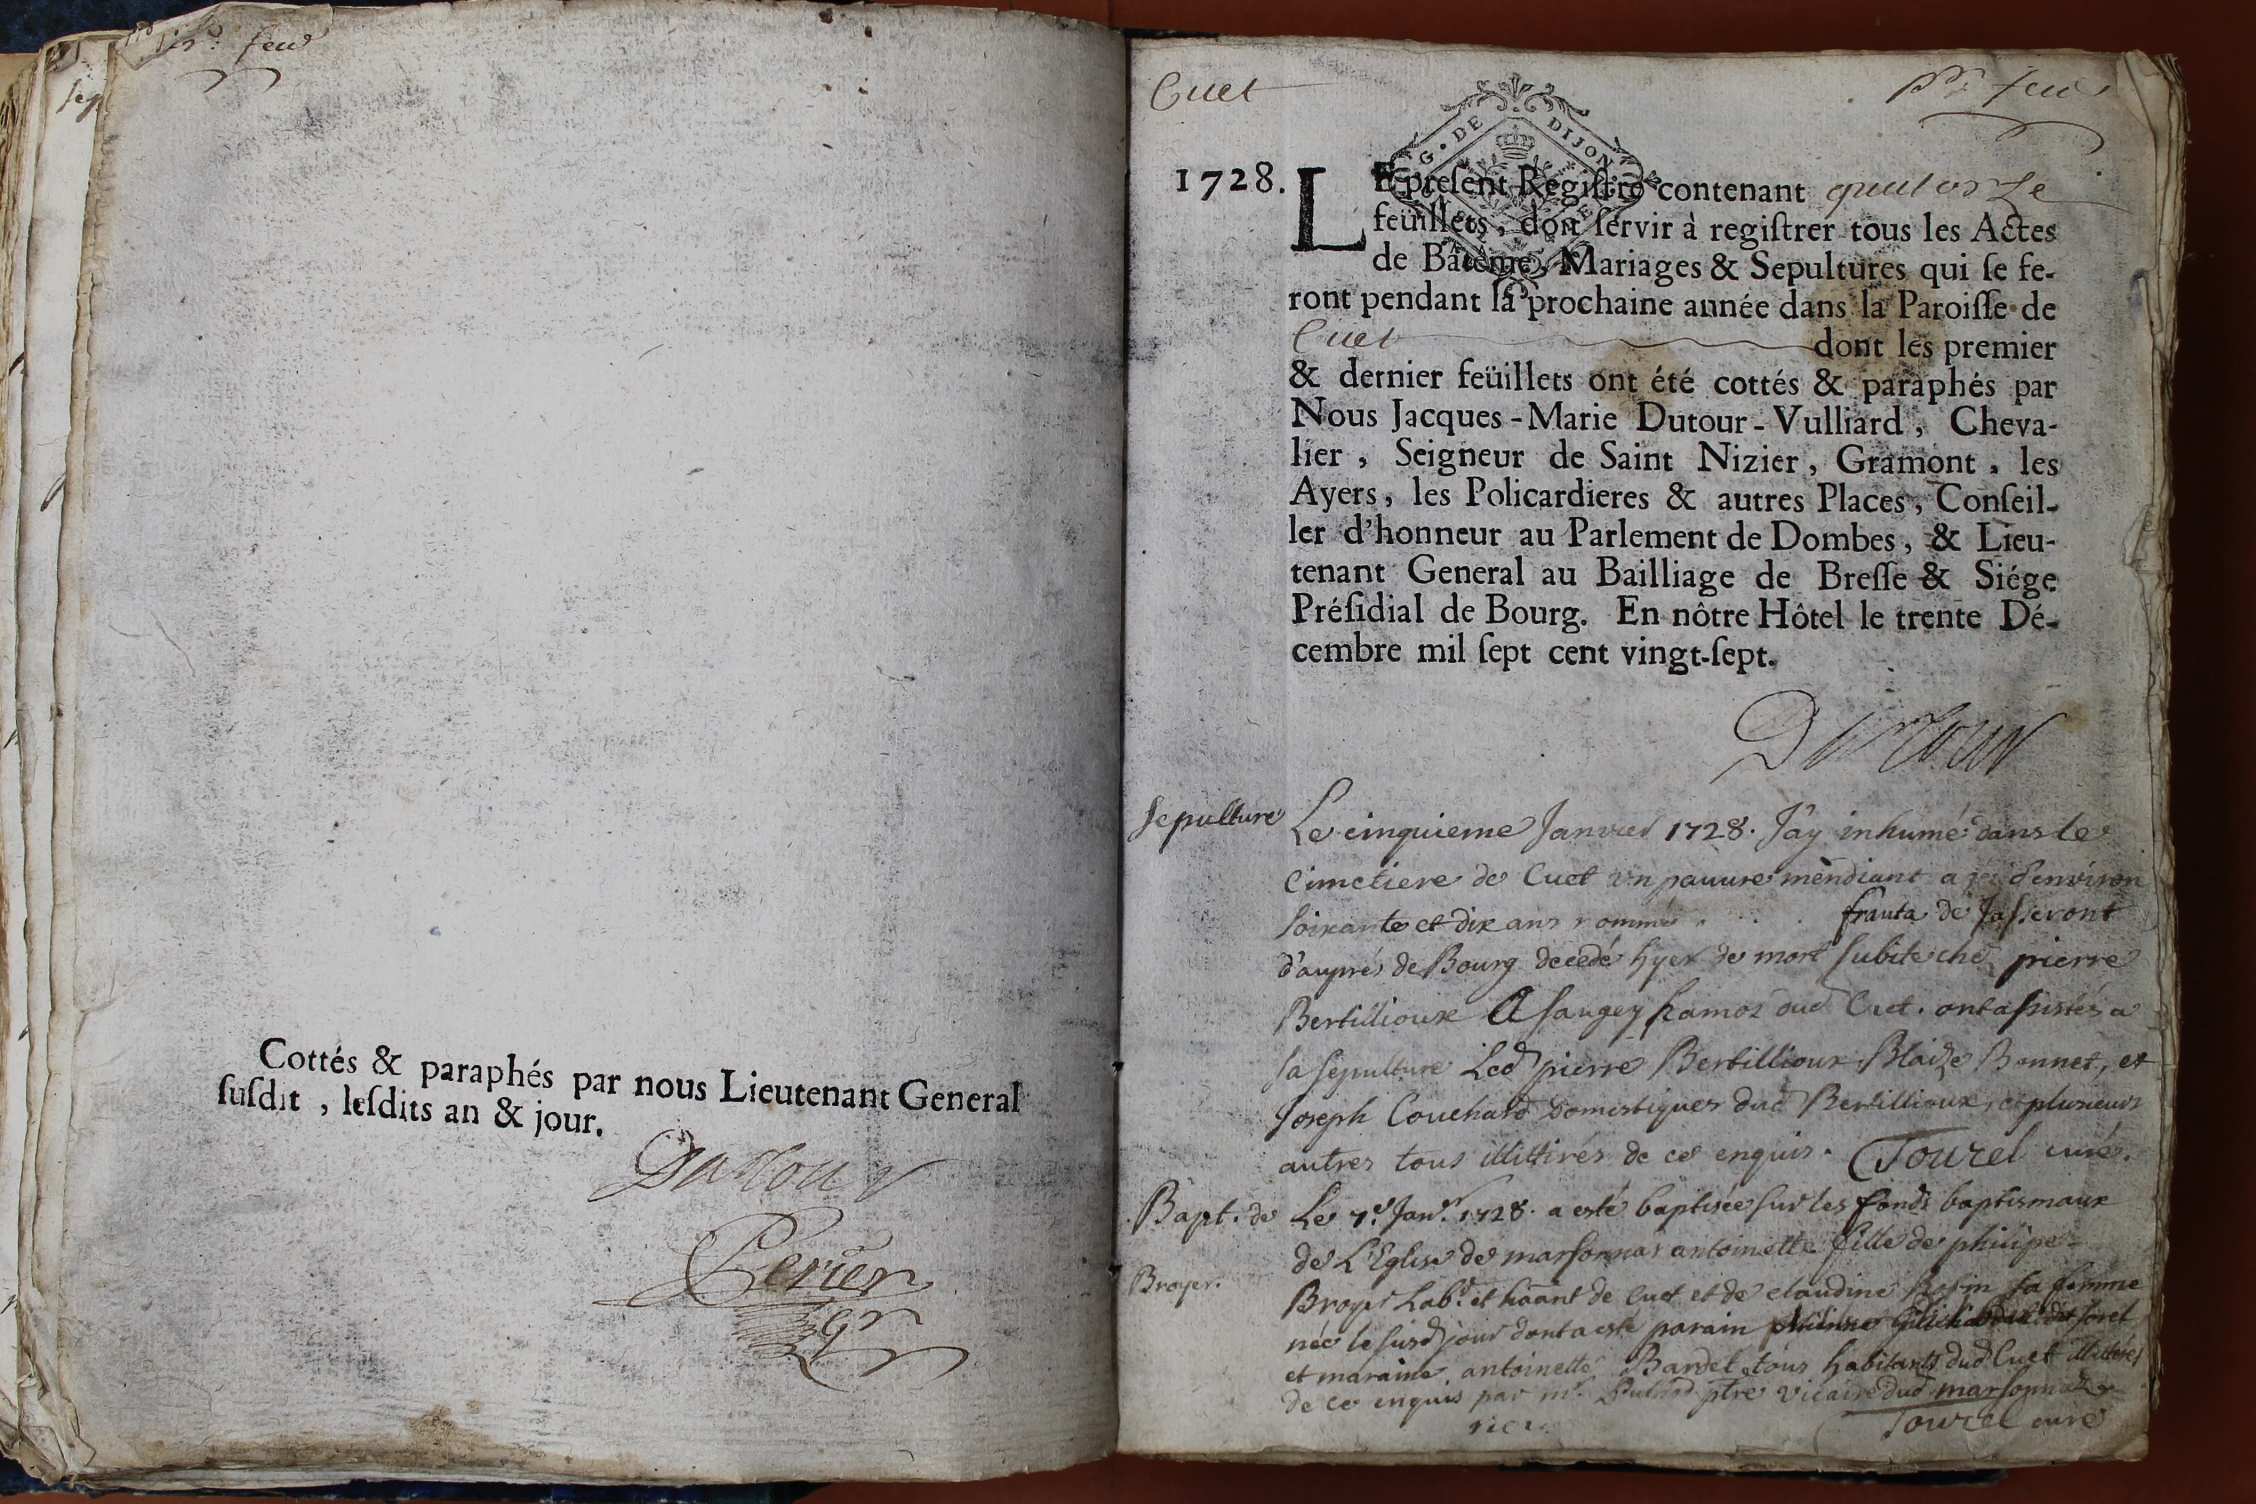 feus
Cottés & paraphés par nous Lieutenant General
suſdit, leſdits an & jour.
Dutour
Perier
gr
Cuet
pr. feus
G. DE DIJON
1728.
LE preſent Regiſtre contenant quatorze
feüillets, doit ſervir à regiſtrer tous les Actes
de Bâtême, Mariages & Sepultures qui ſe fe-
ront pendant la prochaine année dans la Paroiſſe de
Cuet dont les premier
& dernier feüillets ont été cottés & paraphés par
Nous Jacques-Marie Dutour-Vulliard, Cheva-
lier, Seigneur de Saint Nizier, Gramont, les
Ayers, les Policardieres & autres Places, Conſeil-
ler d'honneur au Parlement de Dombes, & Lieu-
tenant General au Bailliage de Breſſe & Siége
Préſidial de Bourg. En nôtre Hôtel le trente Dé-
cembre mil ſept cent vingt-ſept.
Dutour
sepulture
Le cinquieme Janvier 1728. J'ay inhumé dans le
Cimetiere de Cuet un pauvre mendiant agé d'environ
soixante et dix ans nommé . . . frauta de Jasseront
d'auprés de Bourg decedé hyer de mort subite ché pierre
Bertillioux A saugey hamoz dud Cuet. ont assistés a
sa sepulture Led pierre Bertillioux, Blaize Bonnet, et
Joseph Couchard Domestiques dud Bertillioux, et plusieurs
autres tous illittirés de ce enquis. Tourel curé.
Bapt. de
Broyer.
Le 7e. Janr. 1728. a esté baptisée sur les fonds baptismaux
de L'Eglise de marsonnas antoinette fille de philipe
Broyer Labr. et haant de Cuet et de claudine sa femme
née le susd jour dont a esté parain
et maraine antoinette Bardet tous habitants dud Cuet illittirés
de ce enquis par mr. ptre vicaire dud marsonnas
Tourel curé